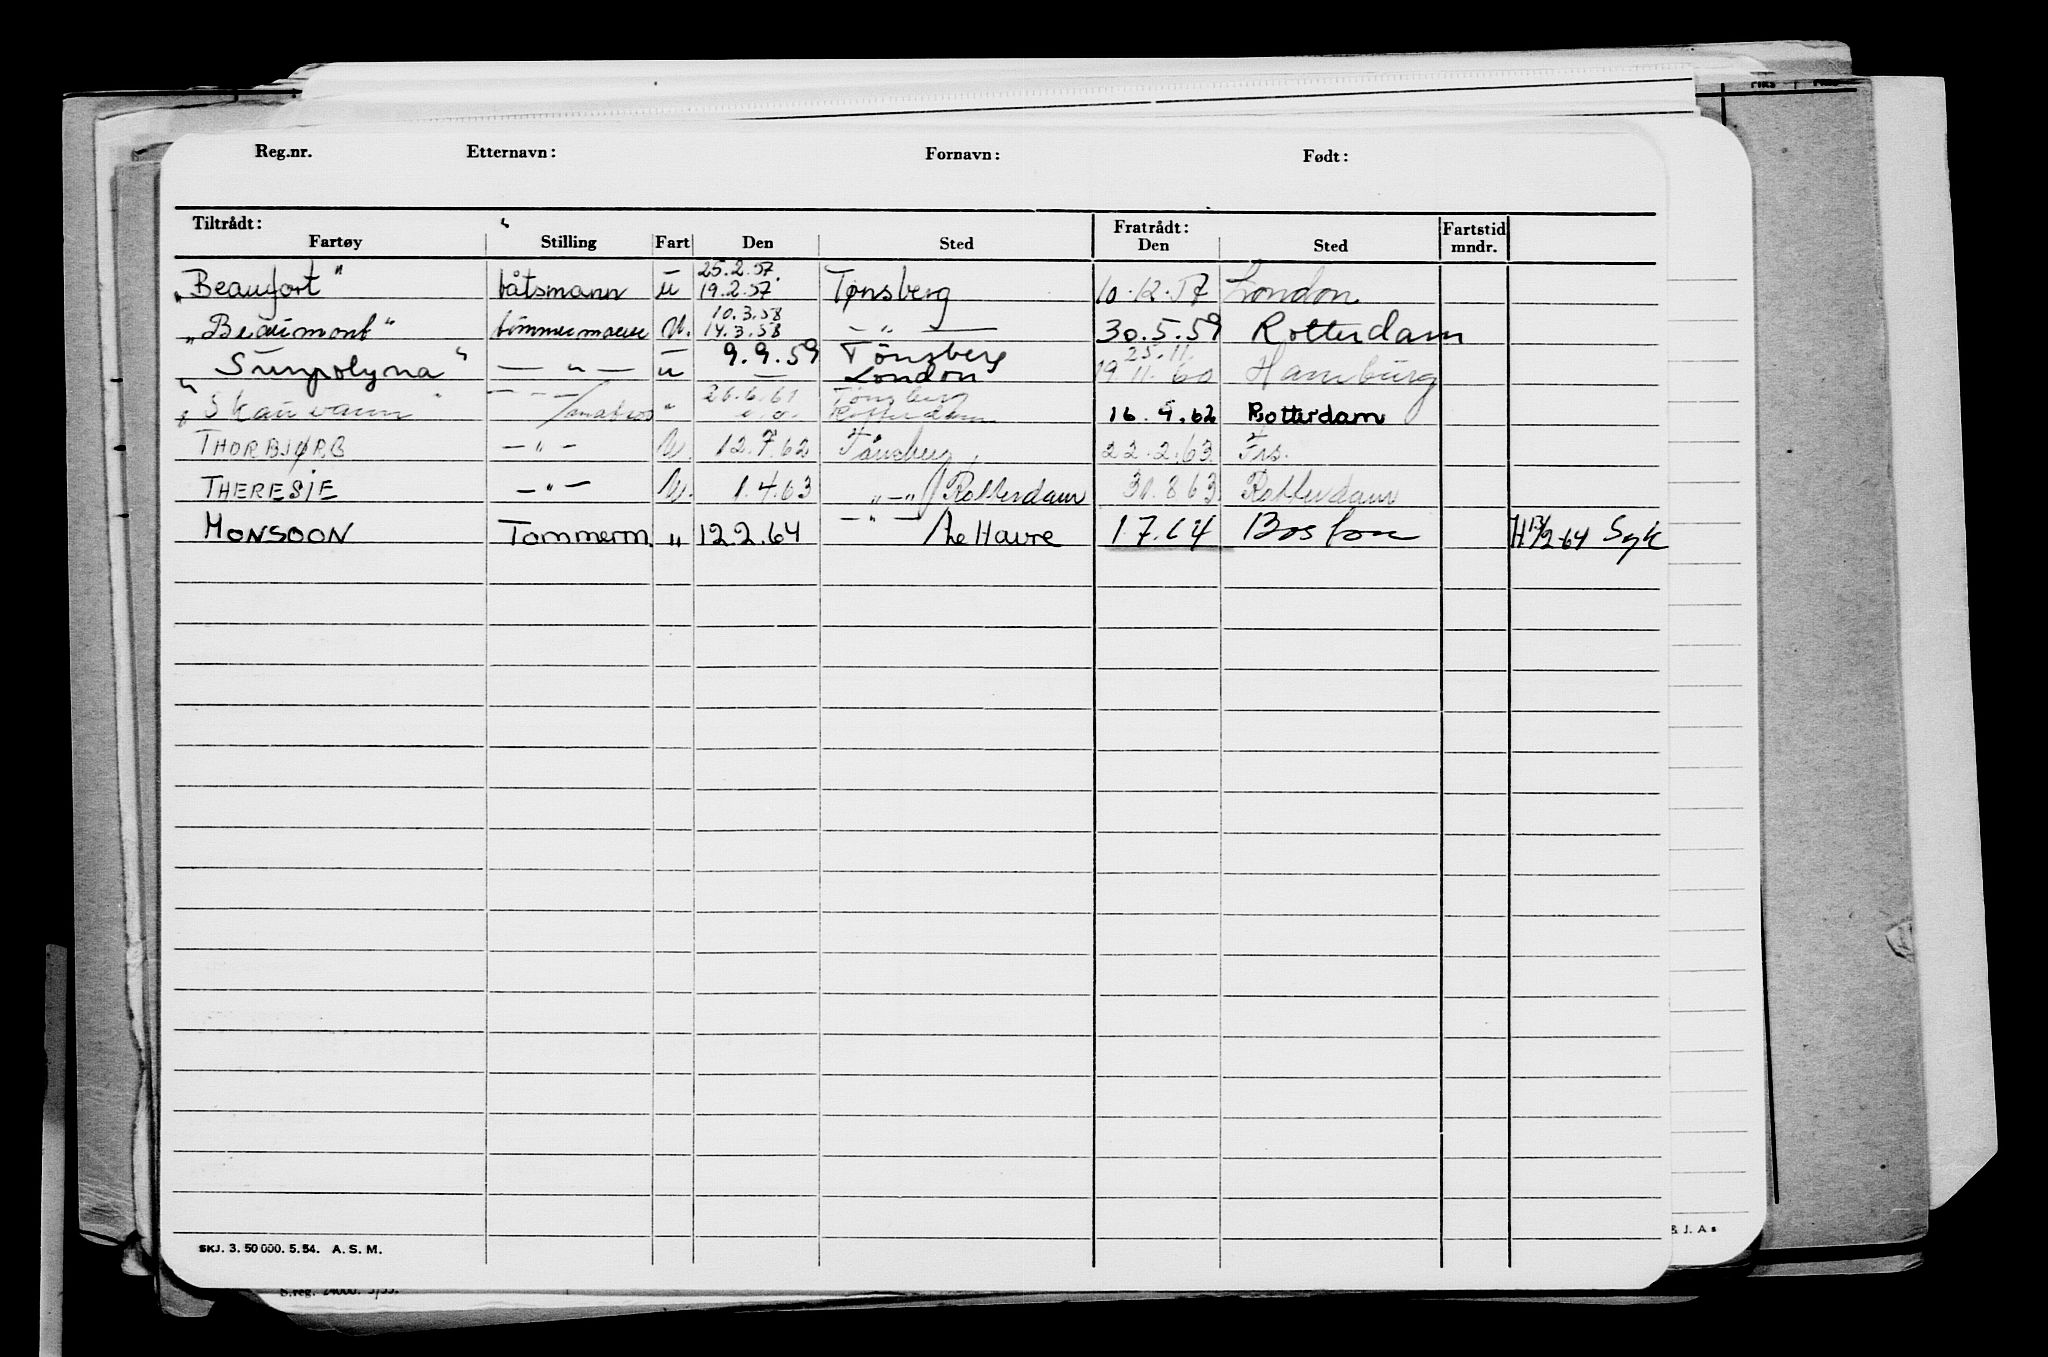 Reg.nr. Etternavn: Fornavn: Født:
Tiltrådt: Fratrådt: Fartstid
Fartøy Stilling Fart Den Sted Den Sted mndr.
25.2.57.
„Beaufort" båtsmann u 19.2.57 Tønsberg 10.12.57 London
10.3.58
„Beaumont" tømmermann U. 14.3.58 — " — 30.5.59 Rotterdam
9.9.59 Tønsberg 25.11.
Sunpolyna " — " — u — London 19.11.60 Hamburg
26.6.61 Tønsberg
„Skauvann" — " — /matros " Rotterdam 16.4.62 Rotterdam
THORBJØRG — " — U. 12.7.62 Tønsberg, 22.2.63 Frs.
THERESIE — " — U. 1.4.63 „—„/Rotterdam 31.8.63 Rotterdam
MONSOON Tømmerm. „ 12 2.64 — " — /Le Havre 1.7.64 Boston H 13/2-64 Syk
SKJ. 3. 50 000. 5. 54. A. S. M.
& J. As
S.reg. 24000. 5/55.